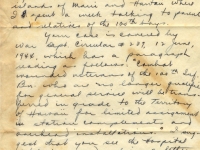 islands of Maui and Hawaii where
I spent a week talking to parents
and relatives of the 100th boys.
Your case is covered by
War Dept. Circular # 239, 12 June,
1944, which has a paragraph
reading as follows: "Combat
wounded veterans of the 100th Inf
Bn. who are no longer qualified
for overseas service will be trans-
ferred in grade to the Territory
of Hawaii for limited assignment
that your
you see the hospital